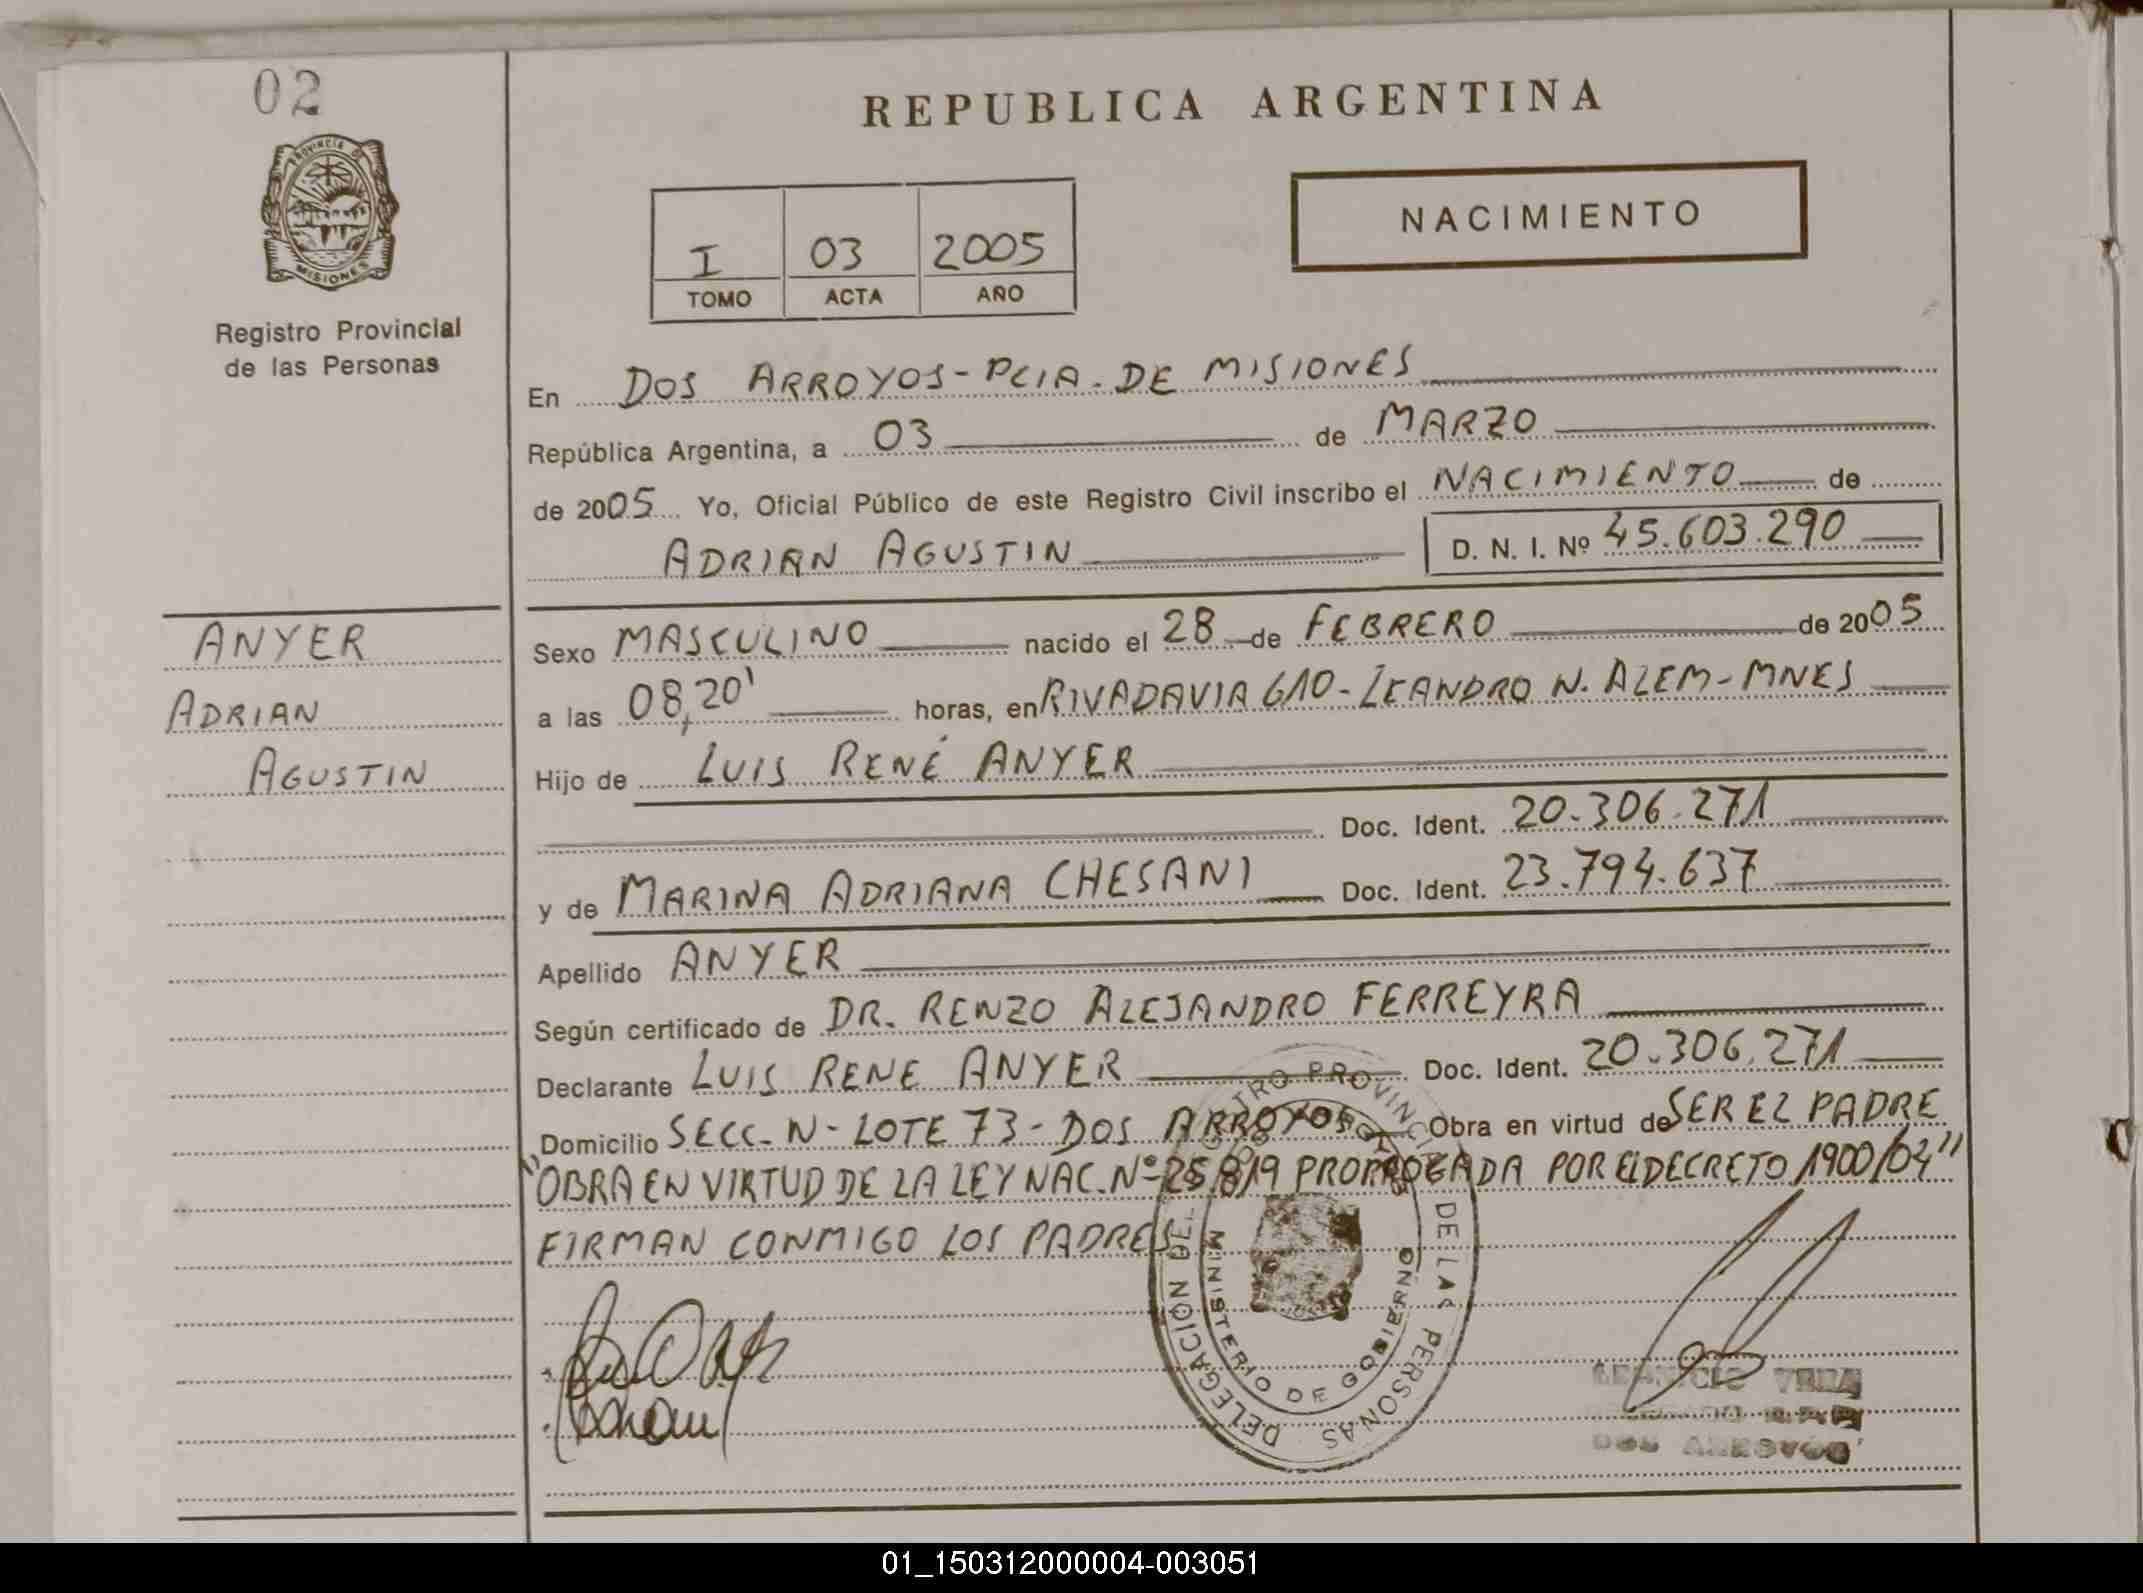 02
REPUBLICA ARGENTINA
PROVINCIA DE
MISIONES
Registro Provincial
de las Personas
I 03 2005
TOMO ACTA AÑO
NACIMIENTO
En DOS ARROYOS - PCIA. DE MISIONES
República Argentina, a 03 de MARZO
de 2005 Yo, Oficial Público de este Registro Civil inscribo el NACIMIENTO de
ADRIAN AGUSTIN D. N. I. Nº 45.603.290
ANYER
ADRIAN
AGUSTIN
Sexo MASCULINO nacido el 28 de FEBRERO de 2005
a las 08,20' horas, en RIVADAVIA 610 - LEANDRO N. ALEM - MNES
Hijo de LUIS RENÉ ANYER
Doc. Ident. 20.306.271
y de MARINA ADRIANA CHESANI Doc. Ident. 23.794.637
Apellido ANYER
Según certificado de DR. RENZO ALEJANDRO FERREYRA
Declarante LUIS RENE ANYER Doc. Ident. 20.306.271
Domicilio SECC. N - LOTE 73 - DOS ARROYOS Obra en virtud de SER EL PADRE
"OBRA EN VIRTUD DE LA LEY NAC. Nº 25.819 PRORROGADA POR EL DECRETO 1900/04"
FIRMAN CONMIGO LOS PADRES
DELEGACION DEL REGISTRO PROVINCIAL DE LAS PERSONAS
MINISTERIO DE GOBIERNO
VERA
DOS ARROYOS
01_150312000004-003051